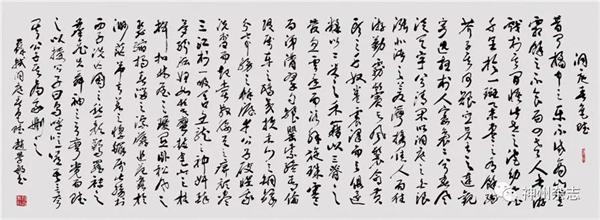 洞庭春色賦
吾聞橘中之樂不減商山豈
霜餘之不食而四老人者游
戲於其間悟此世之泡幻藏
千里於一斑舉棗葉之有餘納
芥子其何艱宜賢王之達觀
寄逸想於人寰嫋嫋兮春風
泛天宇兮清閑吹洞庭之白浪
漲北渚之蒼灣攜佳人而往
游勒霧鬢與風鬟命黃
頭之千奴卷震澤而與俱還
糅以二米之禾藉以三脊之
菅忽雲蒸而冰解旋珠零
而涕潸翠勺銀罌紫絡青綸
隨屬車之鴟夷款木門之銅鐶
分帝觴之餘瀝幸公子之破慳我
洗盞而起嘗散腰足之痹頑盡
三江於一吸吞魚龍之神奸醉
夢紛紜始如髦蠻鼓包山之桂
楫扣林屋之瓊關臥松風之
瑟縮揭春溜之淙潺追范蠡於
渺茫弔夫差之惸鰥屬此觴於
西子洗亡國之愁顏驚羅襪之
塵飛失舞袖之弓彎覺而賦
之以授公子曰烏乎噫嘻吾言夸
矣公子其為我刪之
蘇軾洞庭春色賦 趙
神州杂志